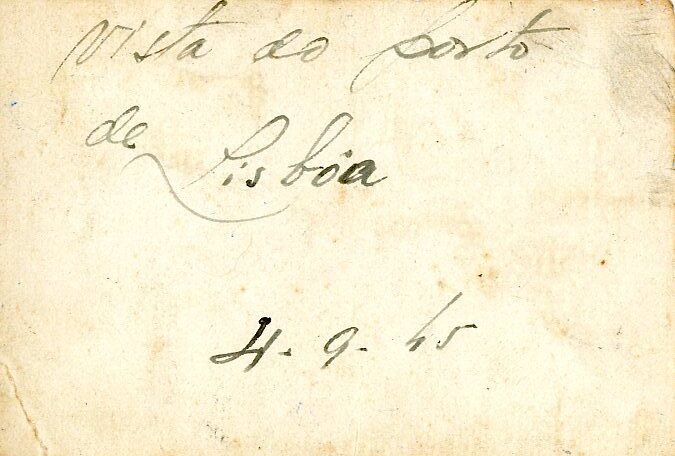 Vista do porto
de
Lisbôa
4. 9. 45